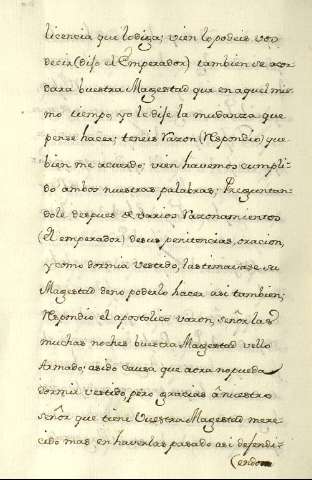 licencia que lo diga; vien lo podeis vos
decir (dijo el Emperador) tambien se acor
dara buestra Magestad que en aquel mis
mo tiempo, yo le dije la mudanza que
pense hacer; teneis razon (Respondio) que
bien me acuerdo; vien havemos cumpli
do ambos nuestras palabras; Preguntan-
dole despues de varios razonamientos
(el emperador) de sus penitencias, oracion,
y como dormia vestido, lastimavase su
Magestad de no poderlo hacer asi tambien;
Respondio el apostolico varon, señor las
muchas noches buestra Magestad vello
Armado; a sido causa que aora no pueda
dormir vestido, pero gracias à nuestro
Señor que tiene Vuestra Magestad mere-
cido mas en haverlas pasado asi defendi-
endo